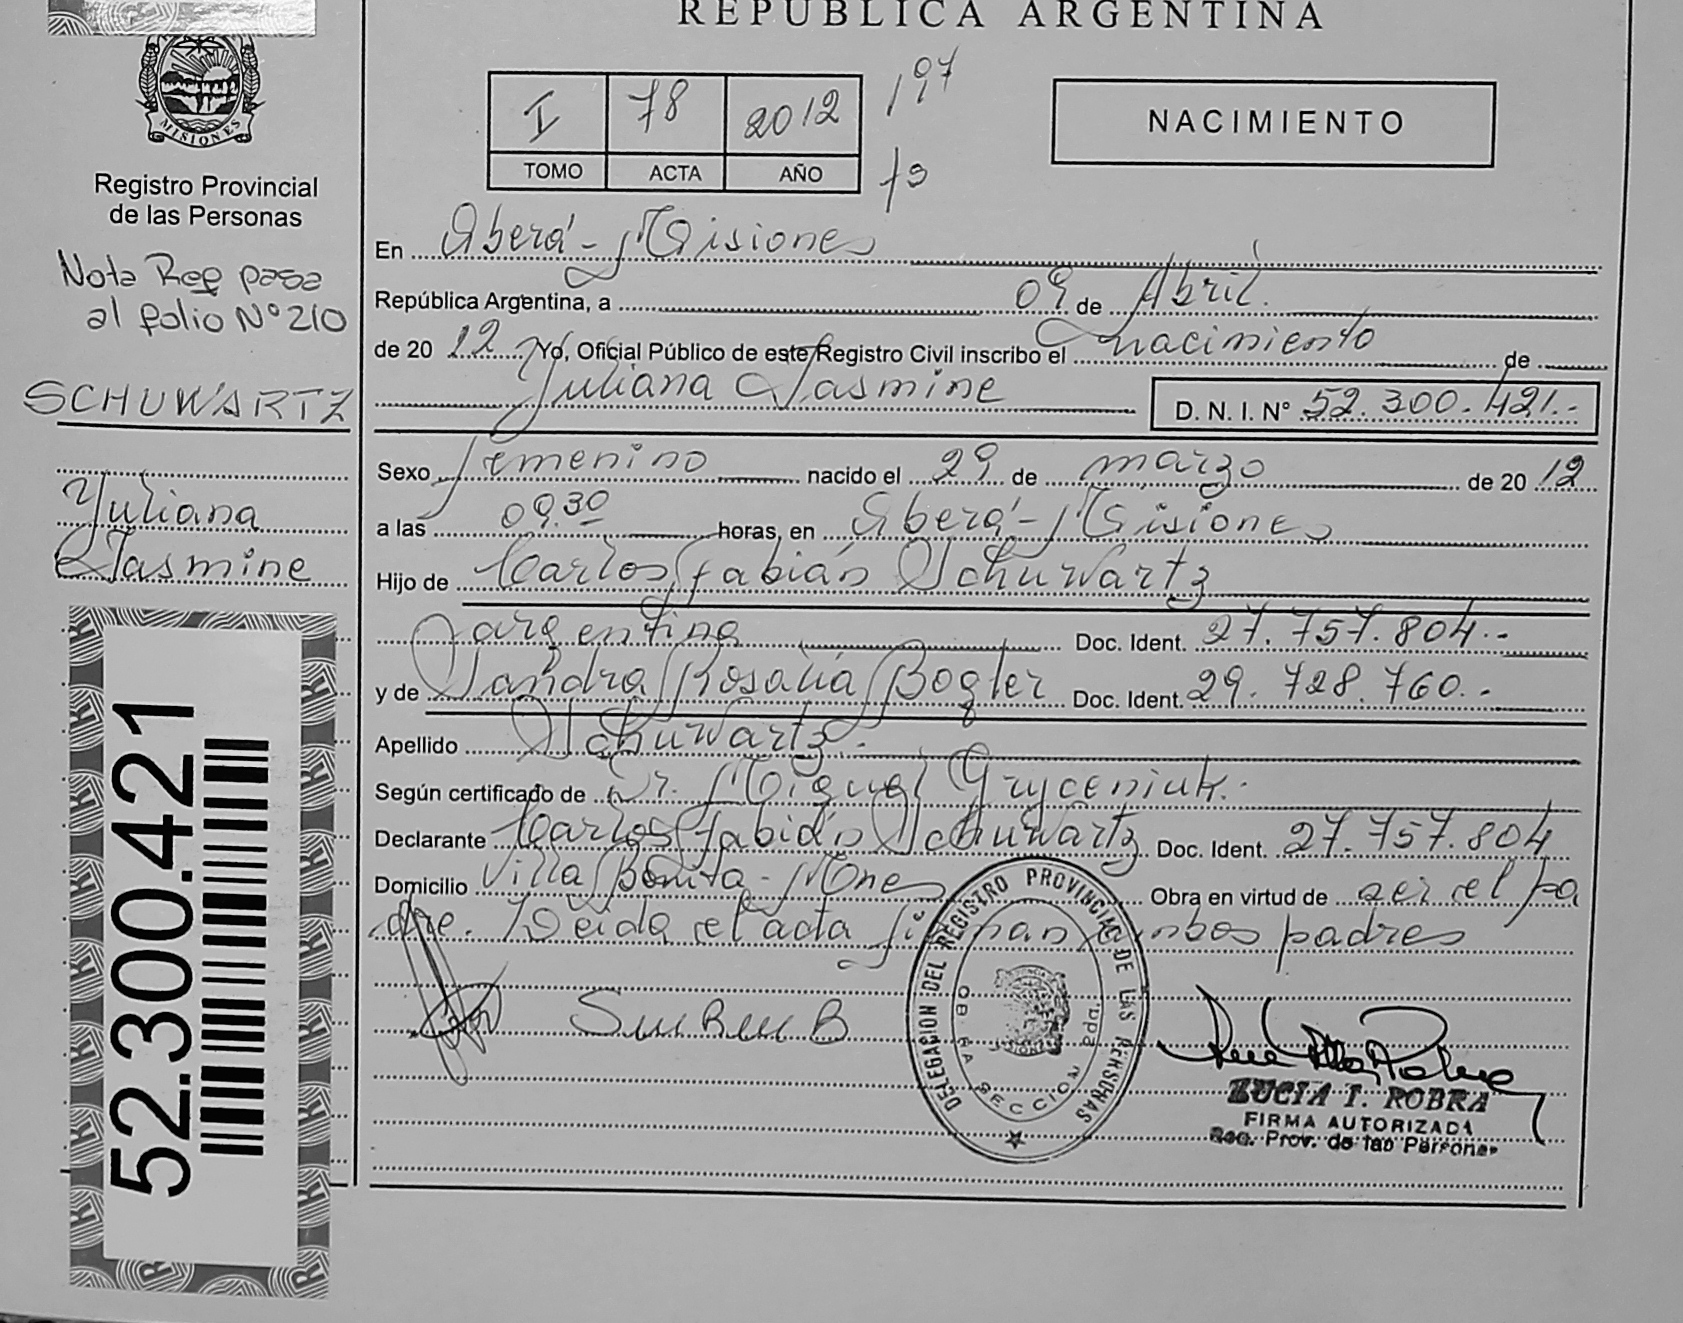 REPUBLICA ARGENTINA
MISIONES
Registro Provincial
de las Personas
Nota Ref pasa
al folio Nº 210
SCHUWARTZ
Yuliana
Jasmine
52.300.421
I 78 2012 197
TOMO ACTA AÑO
NACIMIENTO
En Oberá - Misiones
República Argentina, a 09 de Abril
de 2012 Yo, Oficial Público de este Registro Civil inscribo el nacimiento de
Yuliana Jasmine D. N. I. Nº 52.300.421.-
Sexo femenino nacido el 29 de marzo de 2012
a las 09.30 horas, en Oberá - Misiones
Hijo de Carlos Fabián Schuwartz
argentino Doc. Ident. 27.757.804.-
y de Sandra Rosalia Bogler Doc. Ident. 29.728.760.-
Apellido Schuwartz.-
Según certificado de Dr. Miguel Gryceniuk.-
Declarante Carlos Fabián Schuwartz Doc. Ident. 27.757.804
Domicilio Villa Bonita - Mnes Obra en virtud de ser el pa
dre. Leida el acta firman ambos padres
DELEGACION DEL REGISTRO PROVINCIAL DE LAS PERSONAS
OBERA SECCION 2da.
LUCIA I. ROBRA
FIRMA AUTORIZADA
Reg. Prov. de las Personas